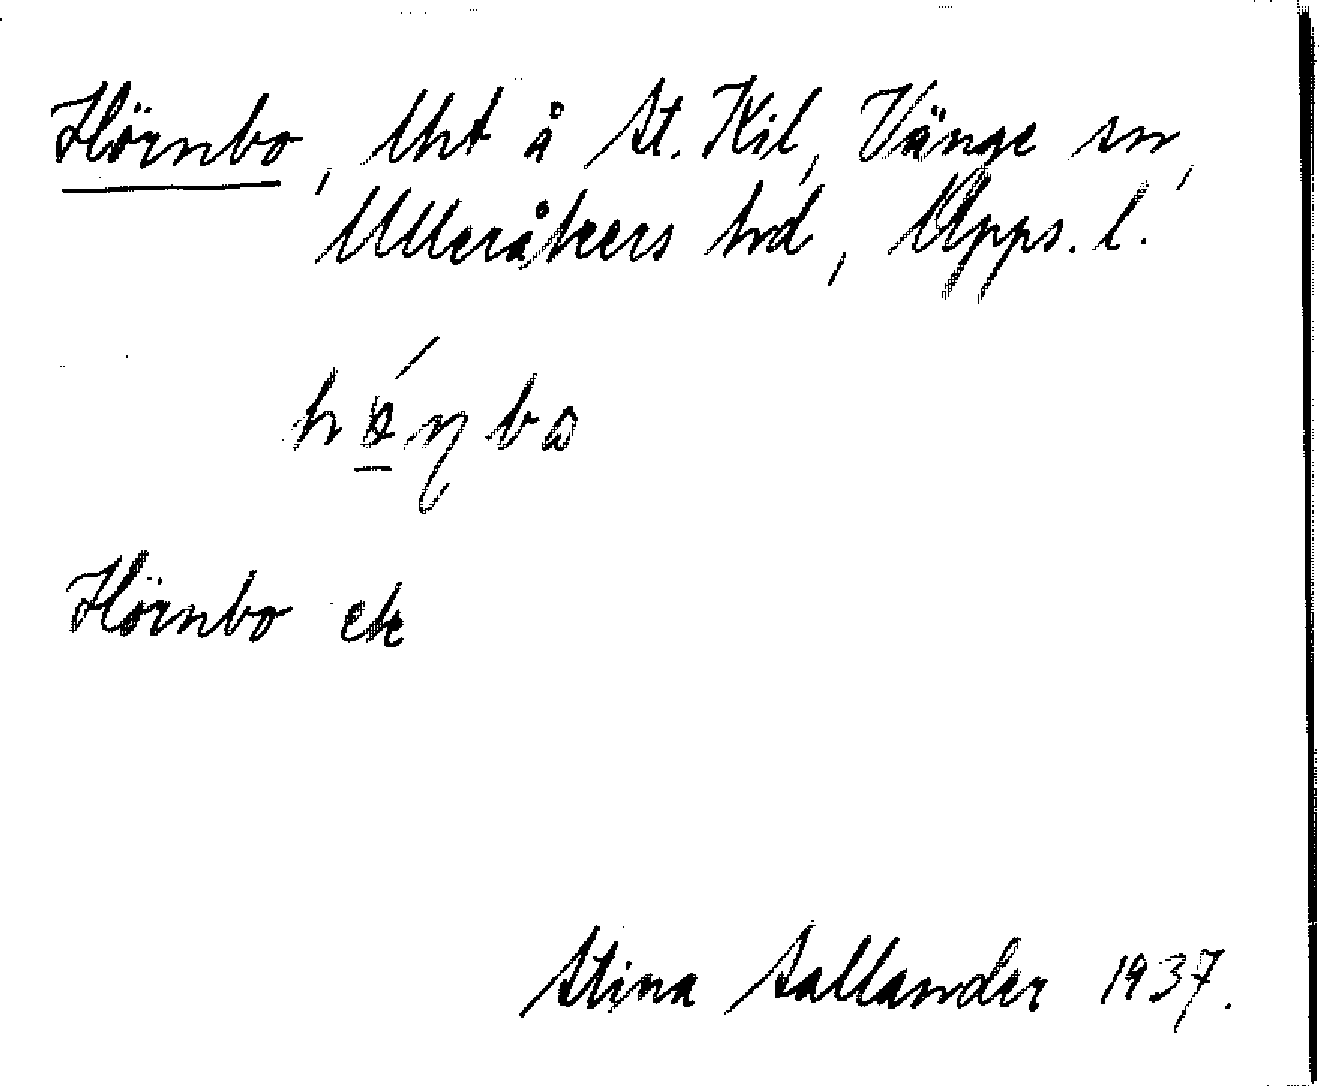 Hörnbo, lht å St. Kil, Vänge sn,
Ulleråkers hrd, Upps. l.
hö́ɳbω
Hörnbo ek
Stina Sallander 1937.